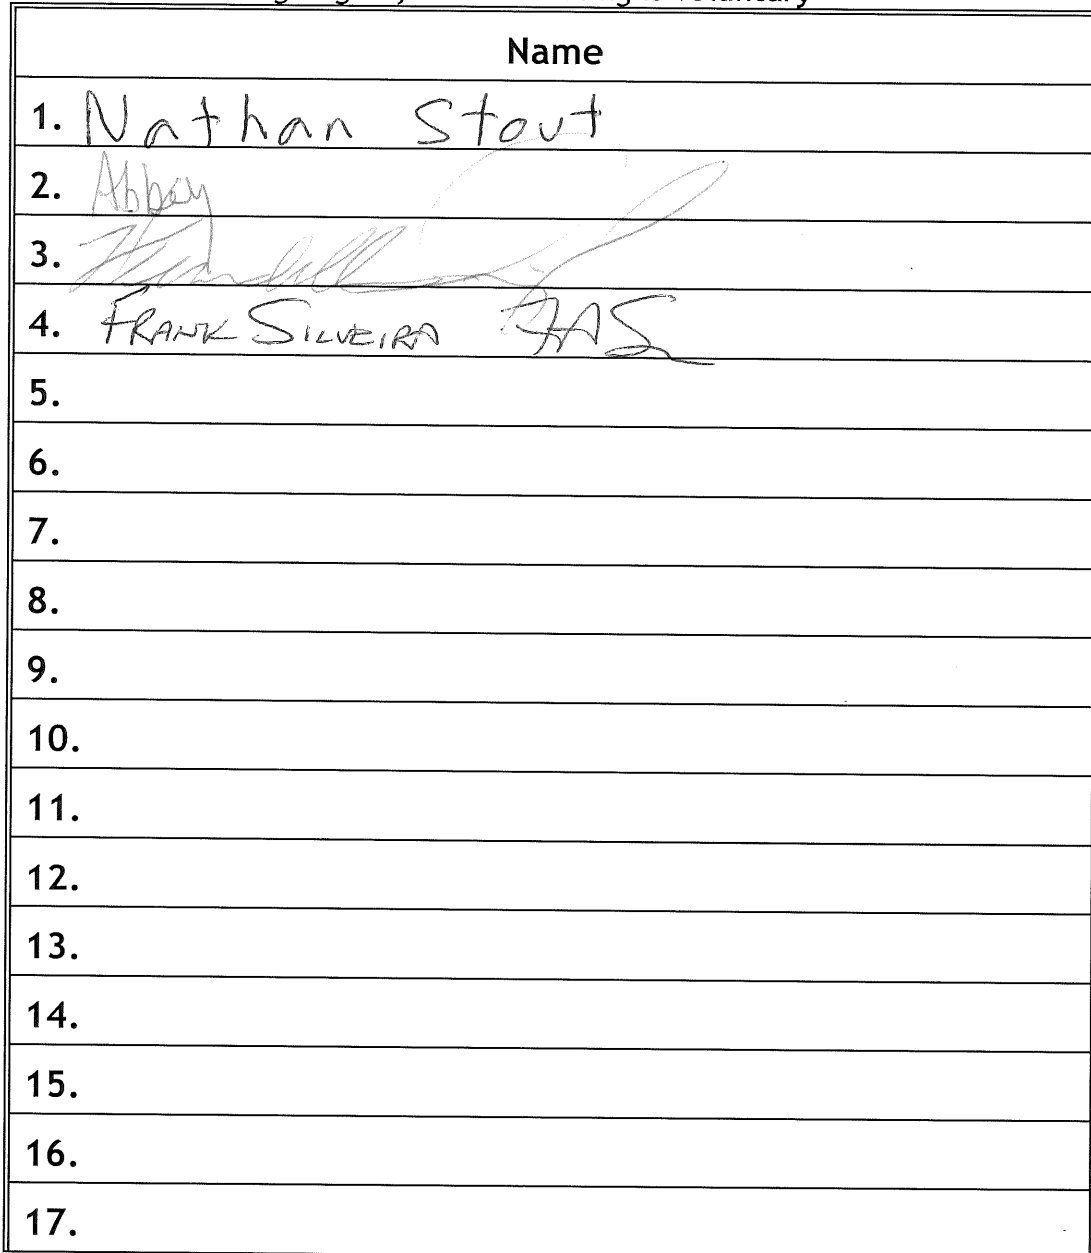 voluntary
Name
1. Nathan Stout
2. Abbey
3.
4. FRANK SILVEIRA FAS
5.
6.
7.
8.
9.
10.
11.
12.
13.
14.
15.
16.
17.